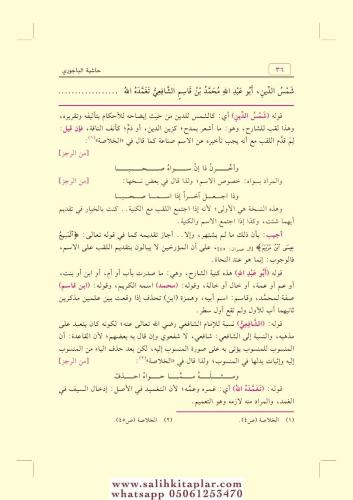 ٣٦
حاشية الباجوري
شَمْسُ الدِّينِ، أَبُو عَبْدِ اللهِ مُحَمَّدُ بْنُ قَاسِمٍ الشَّافِعِيُّ تَغَمَّدَهُ اللهُ ..................
قوله (شَمْسُ الدِّينِ) أي: كالشمس للدين من حيث إيضاحه للأحكام بتأليفه وتقريره،
وهذا لقب للشارح، وهو: ما أشعر بمدح؛ كزين الدين، أو ذمّ؛ كأنف الناقة، فإن قيل:
لِمَ قدَّم اللقب مع أنه يجب تأخيره عن الاسم صناعة كما قال في «الخلاصة»(١):
[من الرجز]
وأخِّـرَنْ ذا إنْ سـواهُ صـحـبـا
والمراد بسواه: خصوص الاسم؛ ولذا قال في بعض نسخها:
[من الرجز]
وذا اجـعـل آخـراً إذا اسـمـا صـحـبـا
وهذه النسخة هي الأولى؛ لأنه إذا اجتمع اللقب مع الكنية.. كنت بالخيار في تقديم
أيهما شئت، وكذا إذا اجتمع الاسم والكنية.
أجيب: بأن ذلك ما لم يشتهر، وإلا.. أجاز تقديمه كما في قوله تعالى: ﴿الْمَسِيحُ
عِيسَى ابْنُ مَرْيَمَ﴾، على أن المؤرخين لا يبالون بتقديم اللقب على الاسم،
فالوجوب: إنما هو عند النحاة.
قوله (أَبُو عَبْدِ اللهِ) هذه كنية الشارح، وهي: ما صدرت بأب أو أم، أو ابن أو بنت،
أو عم أو عمة، أو خال أو خالة، وقوله: (محمد) اسمه الكريم، وقوله: (ابن قاسم)
صفة لمحمَّد، وقاسم: اسم أبيه، وهمزة (ابن) تحذف إذا وقعت بين علمين مذكرين
ثانيهما أب للأول ولم تقع أول سطر.
قوله: (الشَّافِعِيُّ) نسبة للإمام الشافعي رضي الله تعالى عنه؛ لكونه كان يتعبد على
مذهبه، والنسبة إلى الشافعي: شافعي، لا شفعوي وإن قال به بعضهم؛ لأن القاعدة: أن
المنسوب للمنسوب يؤتى به على صورة المنسوب إليه، لكن بعد حذف الياء من المنسوب
إليه وإثبات بدلها في المنسوب؛ ولذا قال في «الخلاصة»(٢):
[من الرجز]
ومـثـلَـهُ مـمَّـا حـواهُ احـذِفْ
قوله: (تَغَمَّدَهُ اللهُ) أي: غمره وعمَّه؛ لأن التغميد في الأصل: إدخال السيف في
الغمد، والمراد منه لازمه وهو التعميم.
(١) الخلاصة (ص٤).
(٢) الخلاصة (ص٤٥).
www.salihkitaplar.com
whatsapp 05061253470